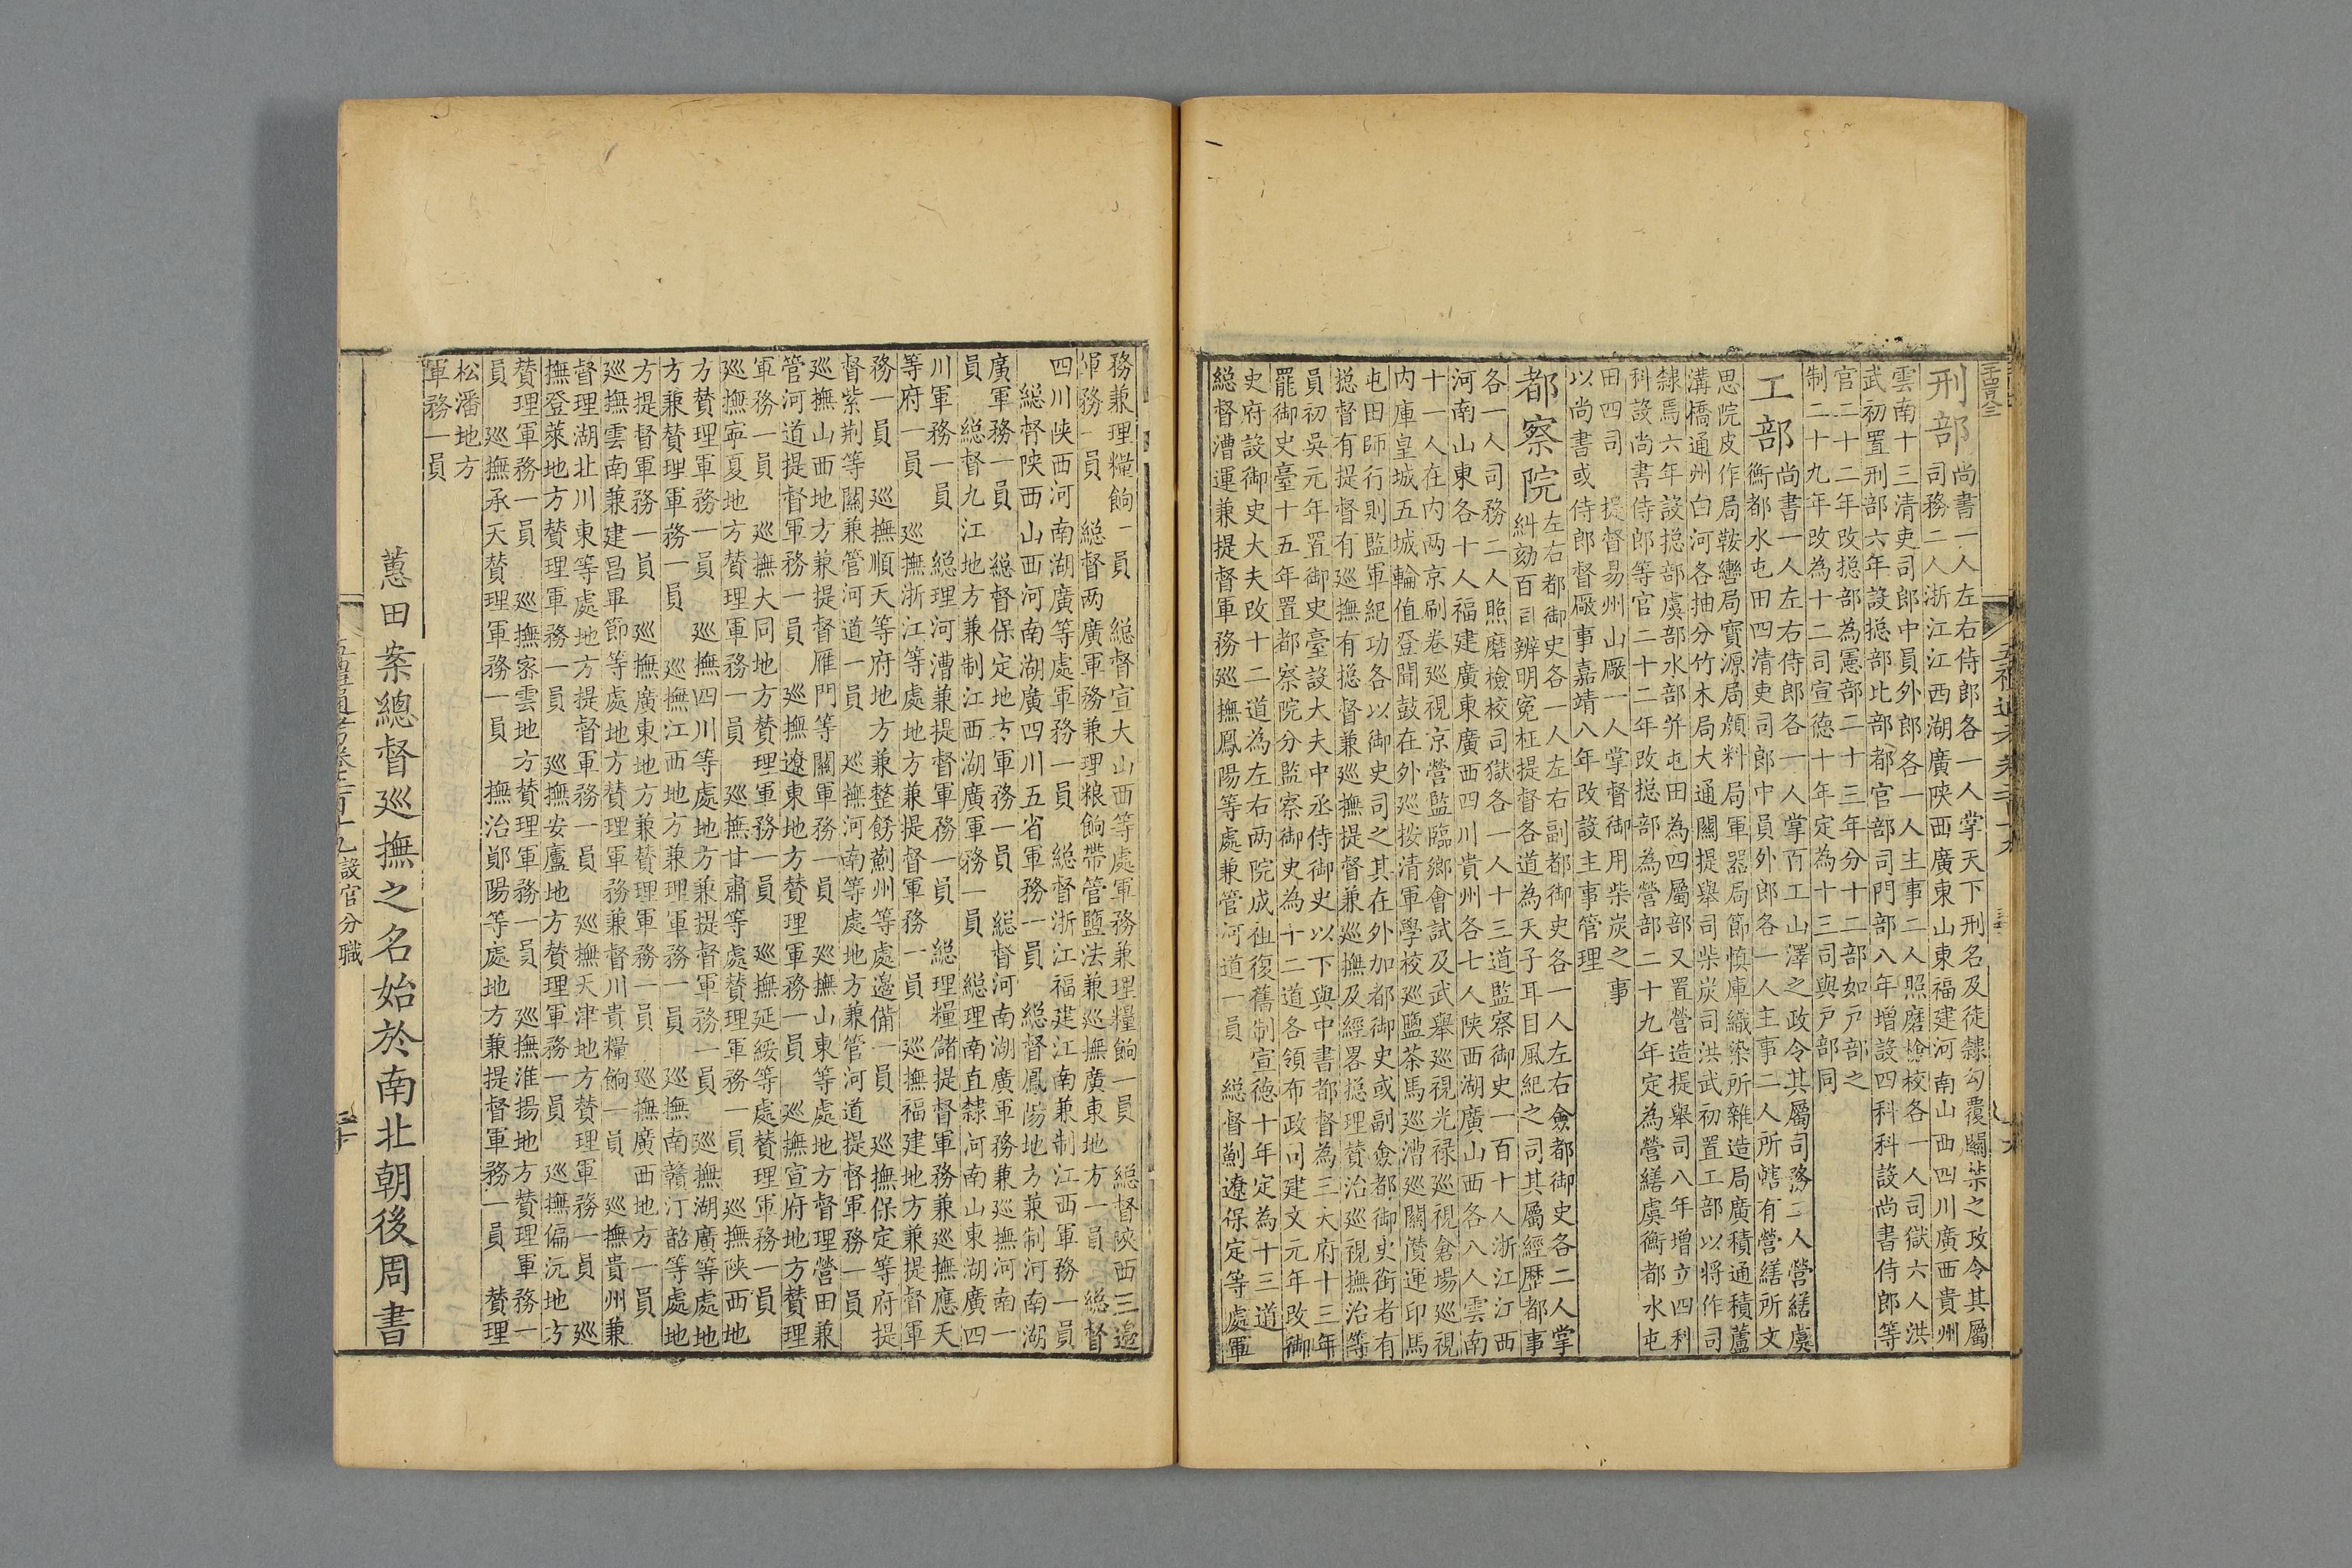 刑部
尚書一人左右侍郎各一人掌天下刑名及徒隸勾覆關禁之政令其屬
司務二人浙江江西湖廣陝西廣東山東福建河南山西四川廣西貴州
雲南十三清吏司郎中員外郎各一人主事二人照磨檢校各一人司獄六人洪
武初置刑部六年設搃部比部都官部司門部八年增設四科科設尚書侍郎等
官二十二年改搃部為憲部二十三年分十二部如戸部之
制二十九年改為十二司宣德十年定為十三司與戸部同
工部
尚書一人左右侍郎各一人掌百工山澤之政令其屬司務二人營繕虞
衡都水屯田四清吏司郎中員外郎各一人主事二人所轄有營繕所文
思院皮作局鞍轡局寶源局顔料局軍器局節慎庫織染所雜造局廣積通積蘆
溝橋通州白河各抽分竹木局大通關提舉司柴炭司洪武初置工部以将作司
隸焉六年設搃部虞部水部并屯田為四屬部又置營造提舉司八年增立四科
科設尚書侍郎等官二十二年改搃部為營部二十九年定為營繕虞衡都水屯
田四司　提督易州山厰一人掌督御用柴炭之事
以尚書或侍郎督厰事嘉靖八年改設主事管理
都察院
左右都御史各一人左右副都御史各一人左右僉都御史各二人掌
糾劾百司辨明寃枉提督各道為天子耳目風紀之司其屬經歷都事
各一人司務二人照磨檢校司獄各一人十三道監察御史一百十人浙江江西
河南山東各十人福建廣東廣西四川貴州各七人陝西湖廣山西各八人雲南
十一人在内两京刷卷巡視京營監臨鄉會試及武舉巡視光禄巡視倉場巡視
内庫皇城五城輪值登聞鼓在外巡按清軍學校巡鹽茶馬巡漕巡關儹運印馬
屯田師行則監軍紀功各以御史司之其在外加都御史或副僉都御史銜者有
搃督有提督有巡撫有搃督兼巡撫提督兼巡撫及經畧搃理賛治巡視撫治等
員初吳元年置御史臺設大夫中丞侍御史以下與中書都督為三大府十三年
罷御史臺十五年置都察院分監察御史為十二道各領布政司建文元年改御
史府設御史大夫改十二道為左右两院成祖復舊制宣德十年定為十三道
総督漕運兼提督軍務巡撫鳳陽等處兼管河道一員　総督薊遼保定等處軍
務兼理糧餉一員　総督宣大山西等處軍務兼理糧餉一員　総督陝西三邊
軍務一員　総督两廣軍務兼理粮餉帶管鹽法兼巡撫廣東地方一員　総督
四川陝西河南湖廣等處軍務一員　総督浙江福建江南兼制江西軍務一員
　総督陝西山西河南湖廣四川五省軍務一員　総督鳳陽地方兼制河南湖
廣軍務一員　総督保定地方軍務一員　総督河南湖廣軍務兼巡撫河南一
員　総督九江地方兼制江西湖廣軍務一員　総理南直隸河南山東湖廣四
川軍務一員　総理河漕兼提督軍務一員　総理糧儲提督軍務兼巡撫應天
等府一員　巡撫浙江等處地方兼提督軍務一員　巡撫福建地方兼提督軍
務一員　巡撫順天等府地方兼整餝薊州等處邊備一員　巡撫保定等府提
督紫荆等關兼管河道一員　巡撫河南等處地方兼管河道提督軍務一員
巡撫山西地方兼提督雁門等關軍務一員　巡撫山東等處地方督理營田兼
管河道提督軍務一員　巡撫遼東地方賛理軍務一員　巡撫宣府地方賛理
軍務一員　巡撫大同地方賛理軍務一員　巡撫延綏等處賛理軍務一員
巡撫寧夏地方賛理軍務一員　巡撫甘肅等處賛理軍務一員　巡撫陝西地
方賛理軍務一員　巡撫四川等處地方兼提督軍務一員　巡撫湖廣等處地
方兼賛理軍務一員　巡撫江西地方兼理軍務一員　巡撫南贛汀韶等處地
方提督軍務一員　巡撫廣東地方兼賛理軍務一員　巡撫廣西地方一員
巡撫雲南兼建昌畢節等處地方賛理軍務兼督川貴糧餉一員　巡撫貴州兼
督理湖北川東等處地方提督軍務一員　巡撫天津地方賛理軍務一員　巡
撫登萊地方賛理軍務一員　巡撫安廬地方賛理軍務一員　巡撫偏沅地方
賛理軍務一員　巡撫密雲地方賛理軍務一員　巡撫淮揚地方賛理軍務一
員　巡撫承天賛理軍務一員　撫治鄖陽等處地方兼提督軍務一員　賛理
松潘地方
軍務一員
蕙田案總督巡撫之名始於南北朝後周書
設官分職